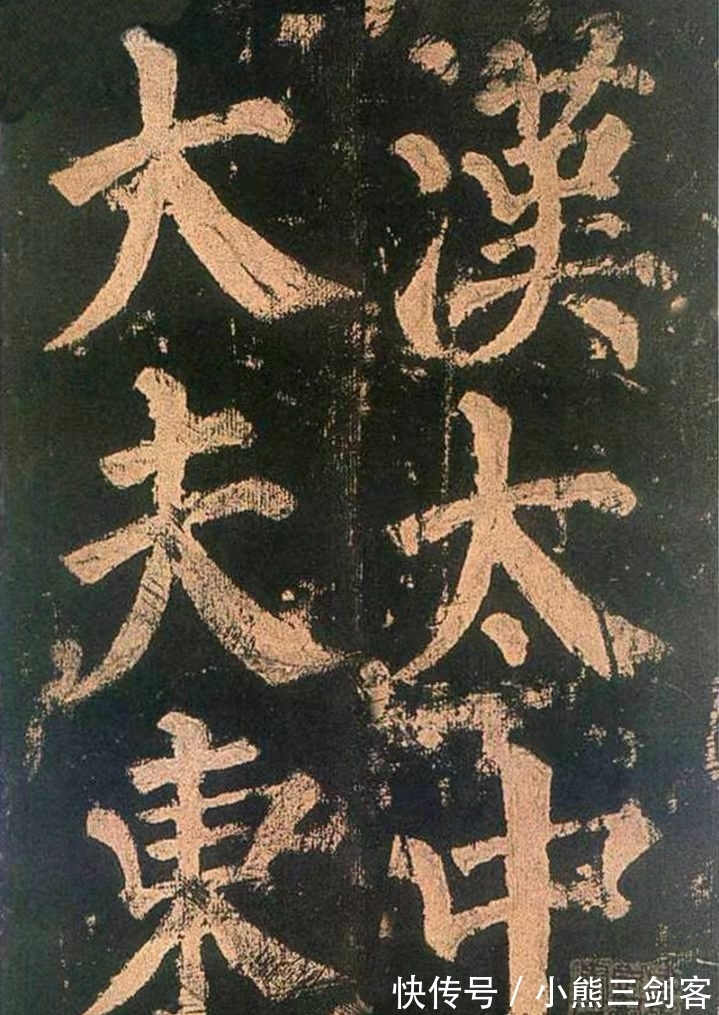 漢太中
大夫東
快传号/小熊三剑客